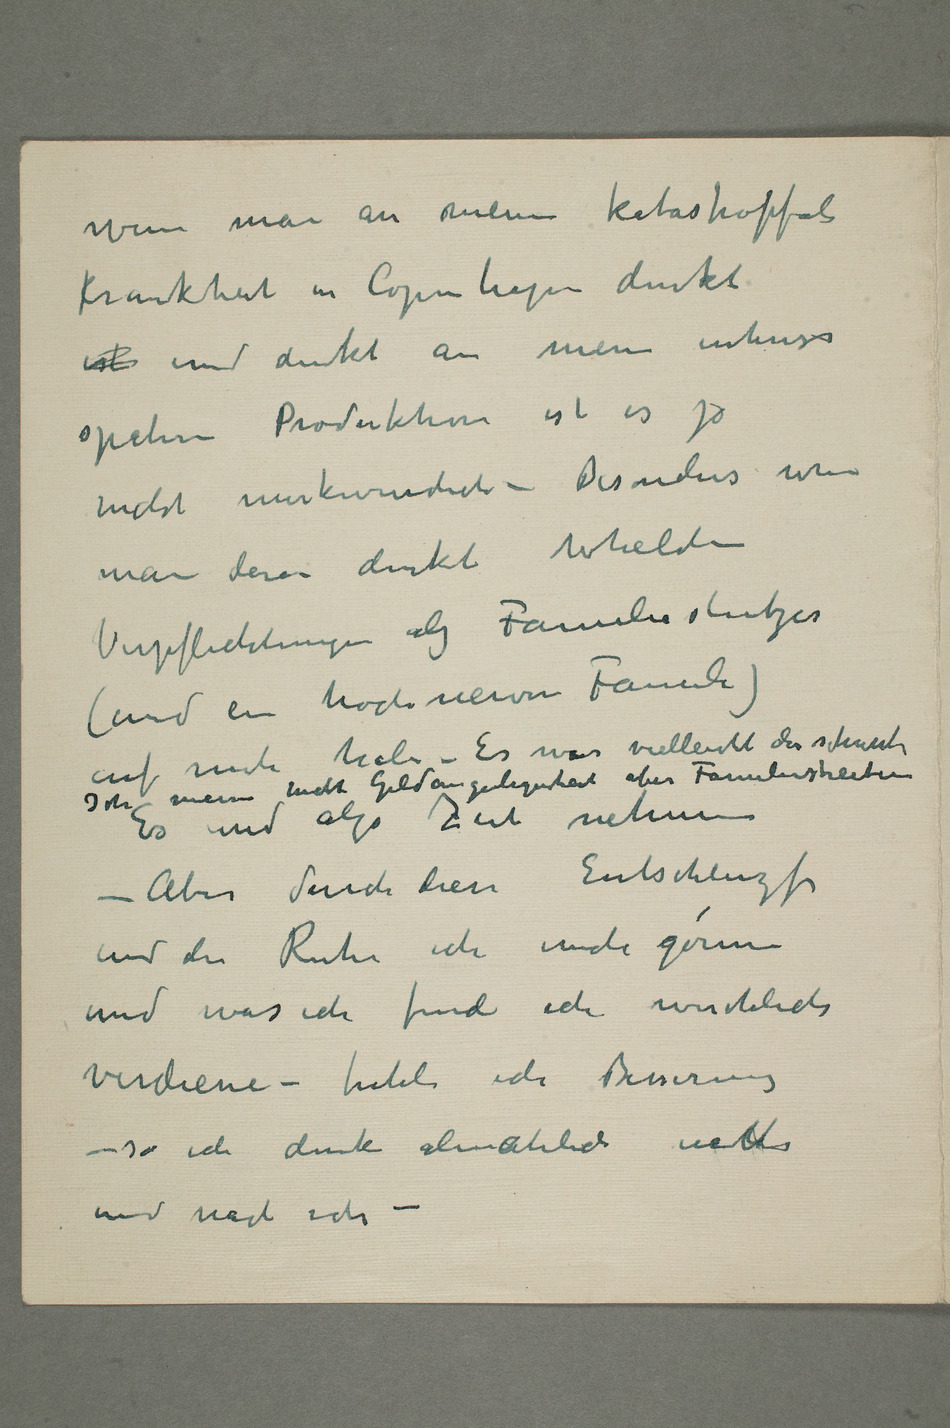 wenn man an meine katastroffale
Krankheit in Copenhagen denkt
ist und denkt an meine intensse
spetere Produktion ist es jo
nicht merkwurdich – Besonders wenn
man daran denkt welche
Verpflichtungen als Familiestutzes
(und ein hoch nervøse Familie)
auf mich habe – Es war vielleicht die schwerste
Ich meine nicht Geldangelegenheit aber Familiestreiten
Es wird also Zeit nehmen
– Aber durch diese Entschluszs
und die Ruhe ich mich gönne
und was ich finde ich wirchlich
verdiene – fuhle ich Besserung
– so ich denke almahlich
und nach ich –